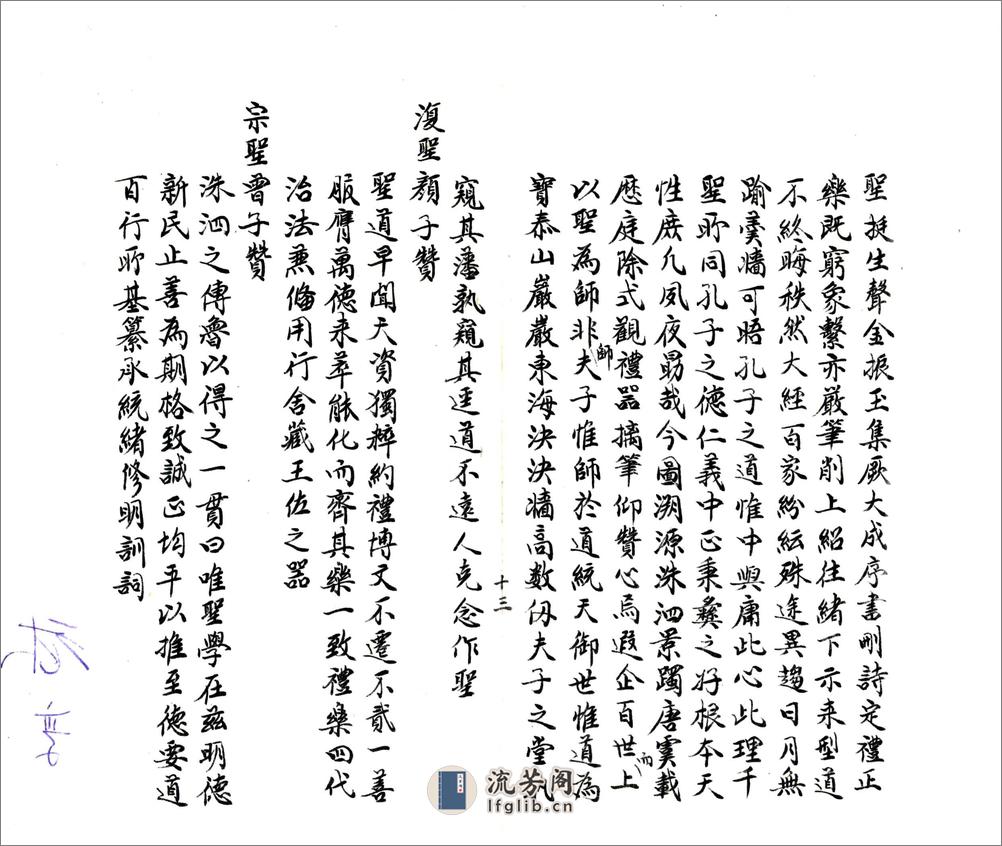 聖挺生聲金振玉集厥大成序書刪詩定禮正
樂既窮象繫亦嚴筆削上紹往緒下示来型道
不終晦秩然大經百家紛紜殊途異趨日月無
踰羹墻可晤孔子之道惟中與庸此心此理千
聖所同孔子之德仁義中正秉彝之好根本天
性庶几夙夜勗哉今圖溯源洙泗景躅唐虞載
歷庭除式觀禮器摛筆仰贊心焉遐企百世而上
以聖為師非師夫子惟師於道統天御世惟道為
寶泰山巖巖東海泱泱墻高数仞夫子之堂孰
窺其藩孰窺其逕道不遠人克念作聖
復聖顏子贊
聖道早聞天資獨粹約禮博文不遷不貳一善
服膺萬德来萃能化而齊其樂一致禮樂四代
治法兼備用行舍藏王佐之器
宗聖曾子贊
洙泗之傳魯以得之一貫曰唯聖學在茲明德
新民止善為期格致誠正均平以推至德要道
百行所基纂承統緒修明訓詞
十三
流芳阁
lfglib.cn